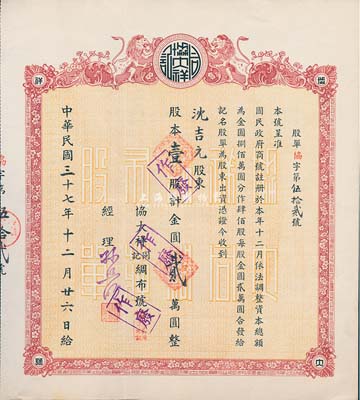 協大祥
股單 協字第伍拾貳號
本號呈准
國民政府商號註冊於本年十二月依法調整資本總額
為金圓捌佰萬圓分作肆佰股每股金圓貳萬圓合發給
記名股單為股東出資憑證今收到
沈吉元股東
股本壹股計金圓貳萬圓整
協大祥 記 綢布號
經理
中華民國三十七年十二月廿六日給
作廢
作廢
作廢
協字第伍拾貳號